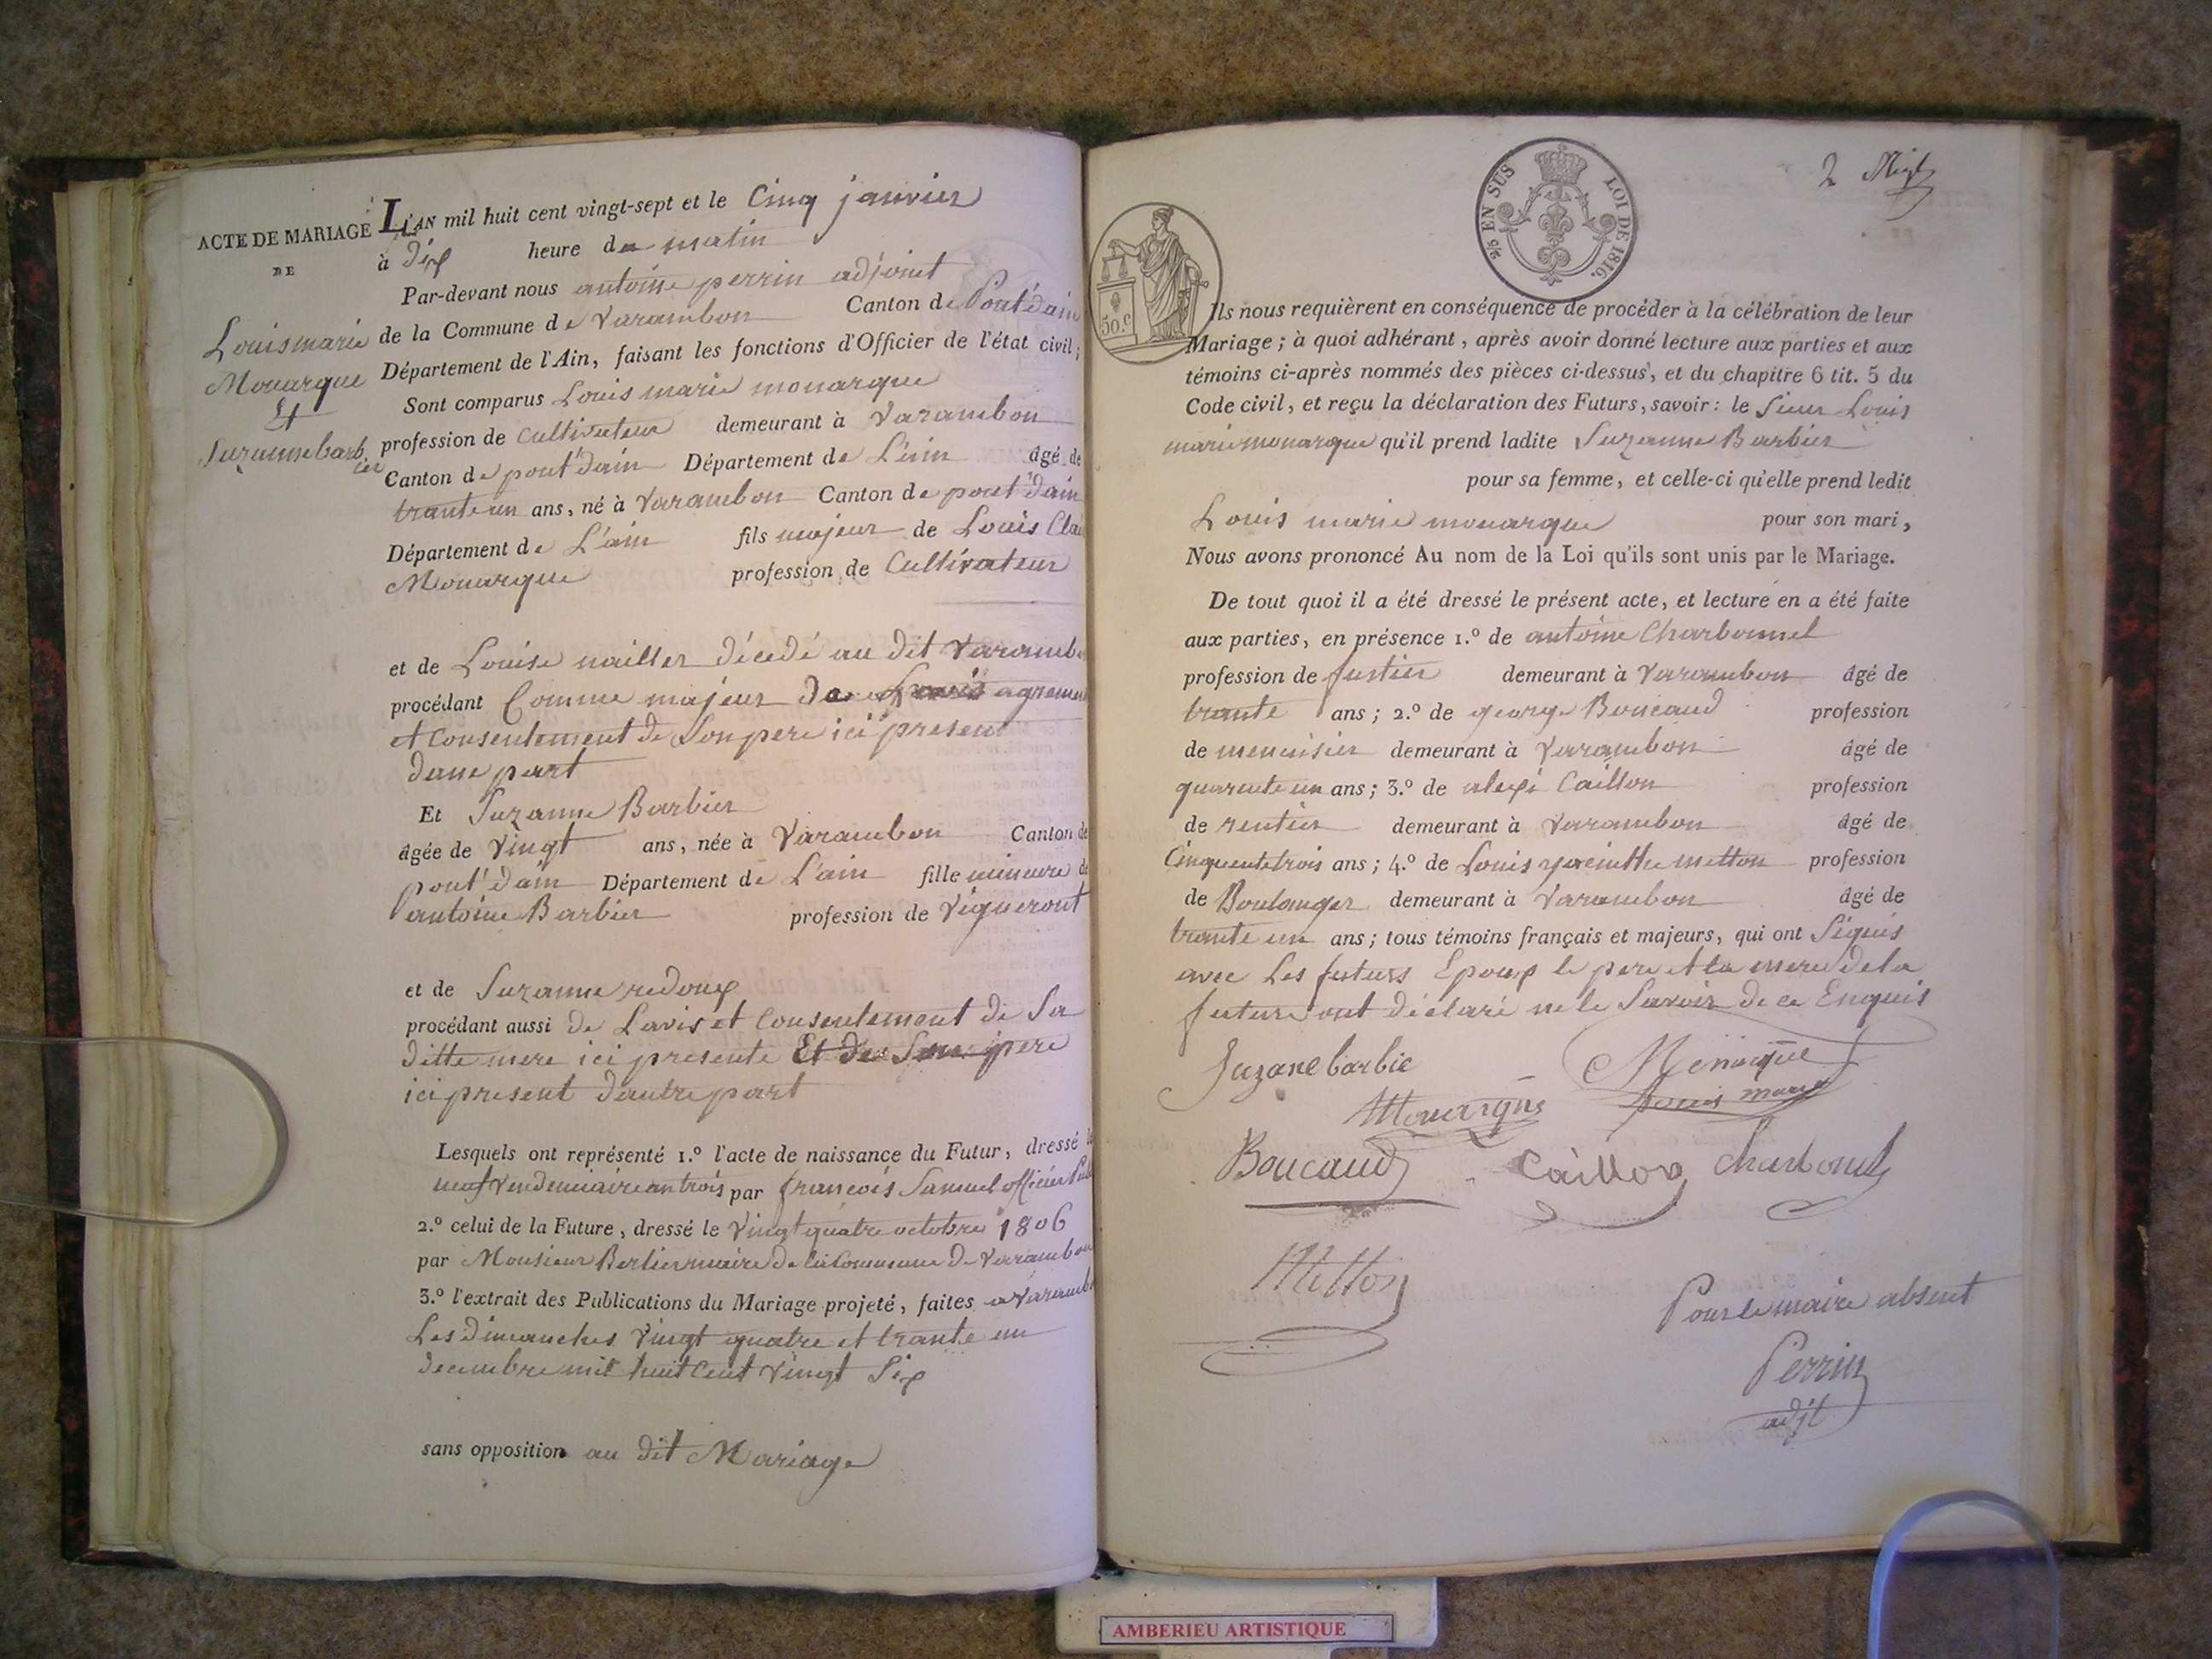 ACTE DE MARIAGE
DE
Louis marie
Monarque
Et
Suzanne barb
ier
L'AN mil huit cent vingt-sept et le Cinq janvier
à dix heure du matin
Par-devant nous antoine perrin adjoint
de la Commune de Varambon Canton de Pont d'ain
Département de l'Ain, faisant les fonctions d'Officier de l'état civil;
Sont comparus Louis marie monarque
profession de Cultivateur demeurant à Varambon
Canton de pont d'ain Département de L'ain âgé de
trante un ans, né à Varambon Canton de pont d'ain
Département de L'ain fils majeur de Louis Clau
Monarque profession de Cultivateur
et de Louise nailler décédé au dit Varambon
procédant Comme majeur de agrement
et Consentement de Son pere ici present
dune part
Et Suzanne Barbier
âgée de Vingt ans, née à Varambon Canton de
pont d'ain Département de L'ain fille mineure de
antoine Barbier profession de Vigneront
et de Suzanne redoux
procédant aussi de Lavis et Consentement de Sa
ditte mere ici presente Et de Son pere
ici present dautre part
Lesquels ont représenté 1.º l'acte de naissance du Futur, dressé le
neuf Vendemiaire an trois par francois Samuel officier Public
2.º celui de la Future, dressé le Vingt quatre octobre 1806
par Monsieur Berlier maire de la Commune de Varambon
3.º l'extrait des Publications du Mariage projeté, faites a Varambon
Les dimanches Vingt quatre et trante un
decembre mil huit Cent Vingt Six
sans opposition au dit Mariage
2
2/5 EN SUS LOI DE 1816.
50.c
Ils nous requièrent en conséquence de procéder à la célébration de leur
Mariage; à quoi adhérant, après avoir donné lecture aux parties et aux
témoins ci-après nommés des pièces ci-dessus, et du chapitre 6 tit. 5 du
Code civil, et reçu la déclaration des Futurs, savoir: le Sieur Louis
marie monarque qu'il prend ladite Suzanne Barbier
pour sa femme, et celle-ci qu'elle prend ledit
Louis marie monarque pour son mari,
Nous avons prononcé Au nom de la Loi qu'ils sont unis par le Mariage.
De tout quoi il a été dressé le présent acte, et lecture en a été faite
aux parties, en présence 1.º de antoine Charbonnel
profession de fustier demeurant à Varambon âgé de
trante ans; 2.º de george Boucaud profession
de menuisier demeurant à Varambon âgé de
quarante un ans; 3.º de alexi Caillon profession
de rentier demeurant à Varambon âgé de
Cinquante trois ans; 4.º de Louis yacinthe metton profession
de Boulanger demeurant à Varambon âgé de
trante un ans; tous témoins français et majeurs, qui ont Signés
avec Les futurs Epoux le pere et la mere de la
future ont déclaré ne le Savoir de ce Enquis
Suzane barbie
Monarque
Louis marie
Monarque
Boucaud
Caillon
Charbonel
Metton
Pour le maire absent
Perrin
adjt
AMBERIEU ARTISTIQUE